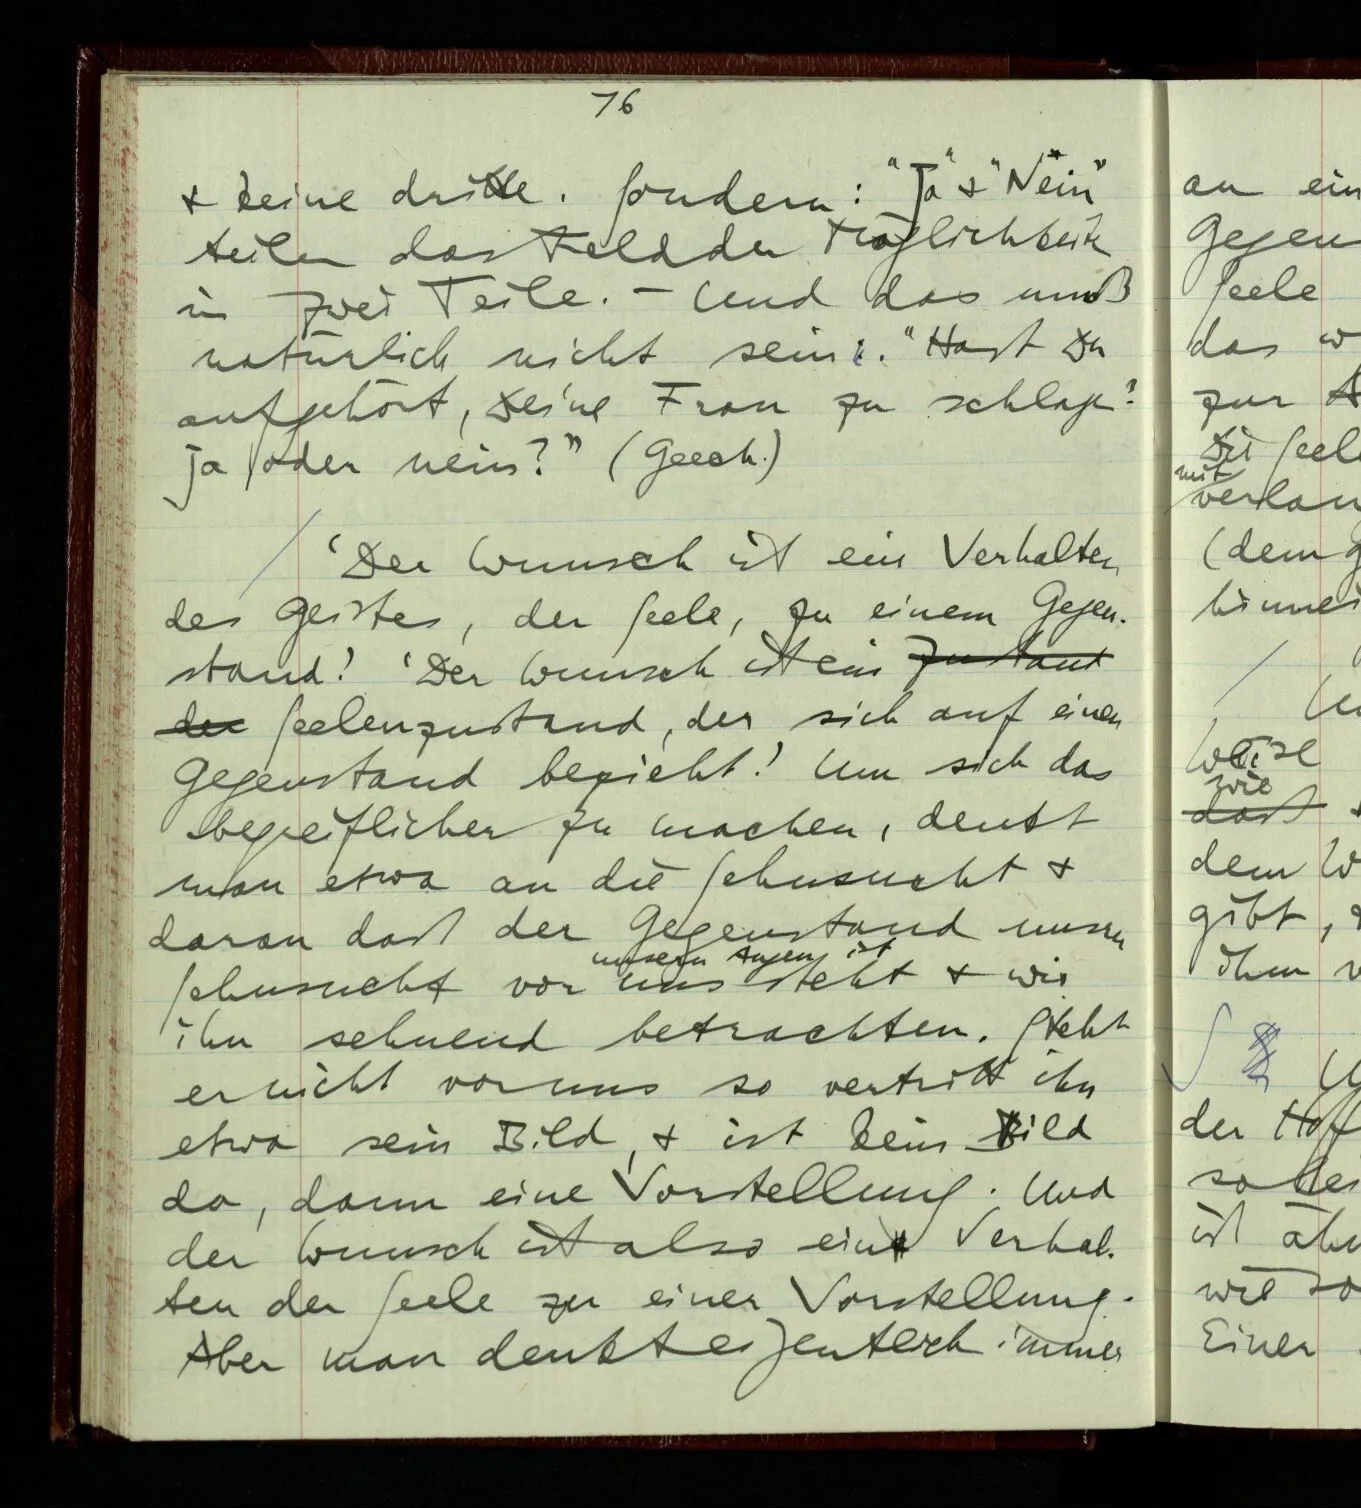 76
& keine dritte. Sondern: "Ja" & "Nein"
teilen das Feld der Möglichkeiten
in zwei Teile. – Und das muß
natürlich nicht sein. "Hast Du
aufgehört, Deine Frau zu schlagen?
ja oder nein?" (Geach.)
'Der Wunsch ist ein Verhalten
des Geistes, der Seele, zu einem Gegen-
stand.' 'Der Wunsch ist ein Zustand
der Seelenzustand, der sich auf einen
Gegenstand bezieht.' Um sich das
begreiflicher zu machen, denkt
man etwa an die Sehnsucht &
daran daß der Gegenstand unsrer
unsern Augen ist
Sehnsucht vor uns steht & wir
ihn sehnend betrachten. Steht
er nicht vor uns so vertritt ihn
etwa sein Bild, & ist kein Bild
da, dann eine Vorstellung. Und
der Wunsch ist also ein Verhal-
ten der Seele zu einer Vorstellung.
Aber man denkt eigentlich immer
an ein
Gegen
Seele
das w
zur
Die Seele
mit
verlan
(dem g
hinnei
Weise
wie
daß
dem W
gibt,
ihm v
der Hoff
so
ist ähn
wie so
Einer